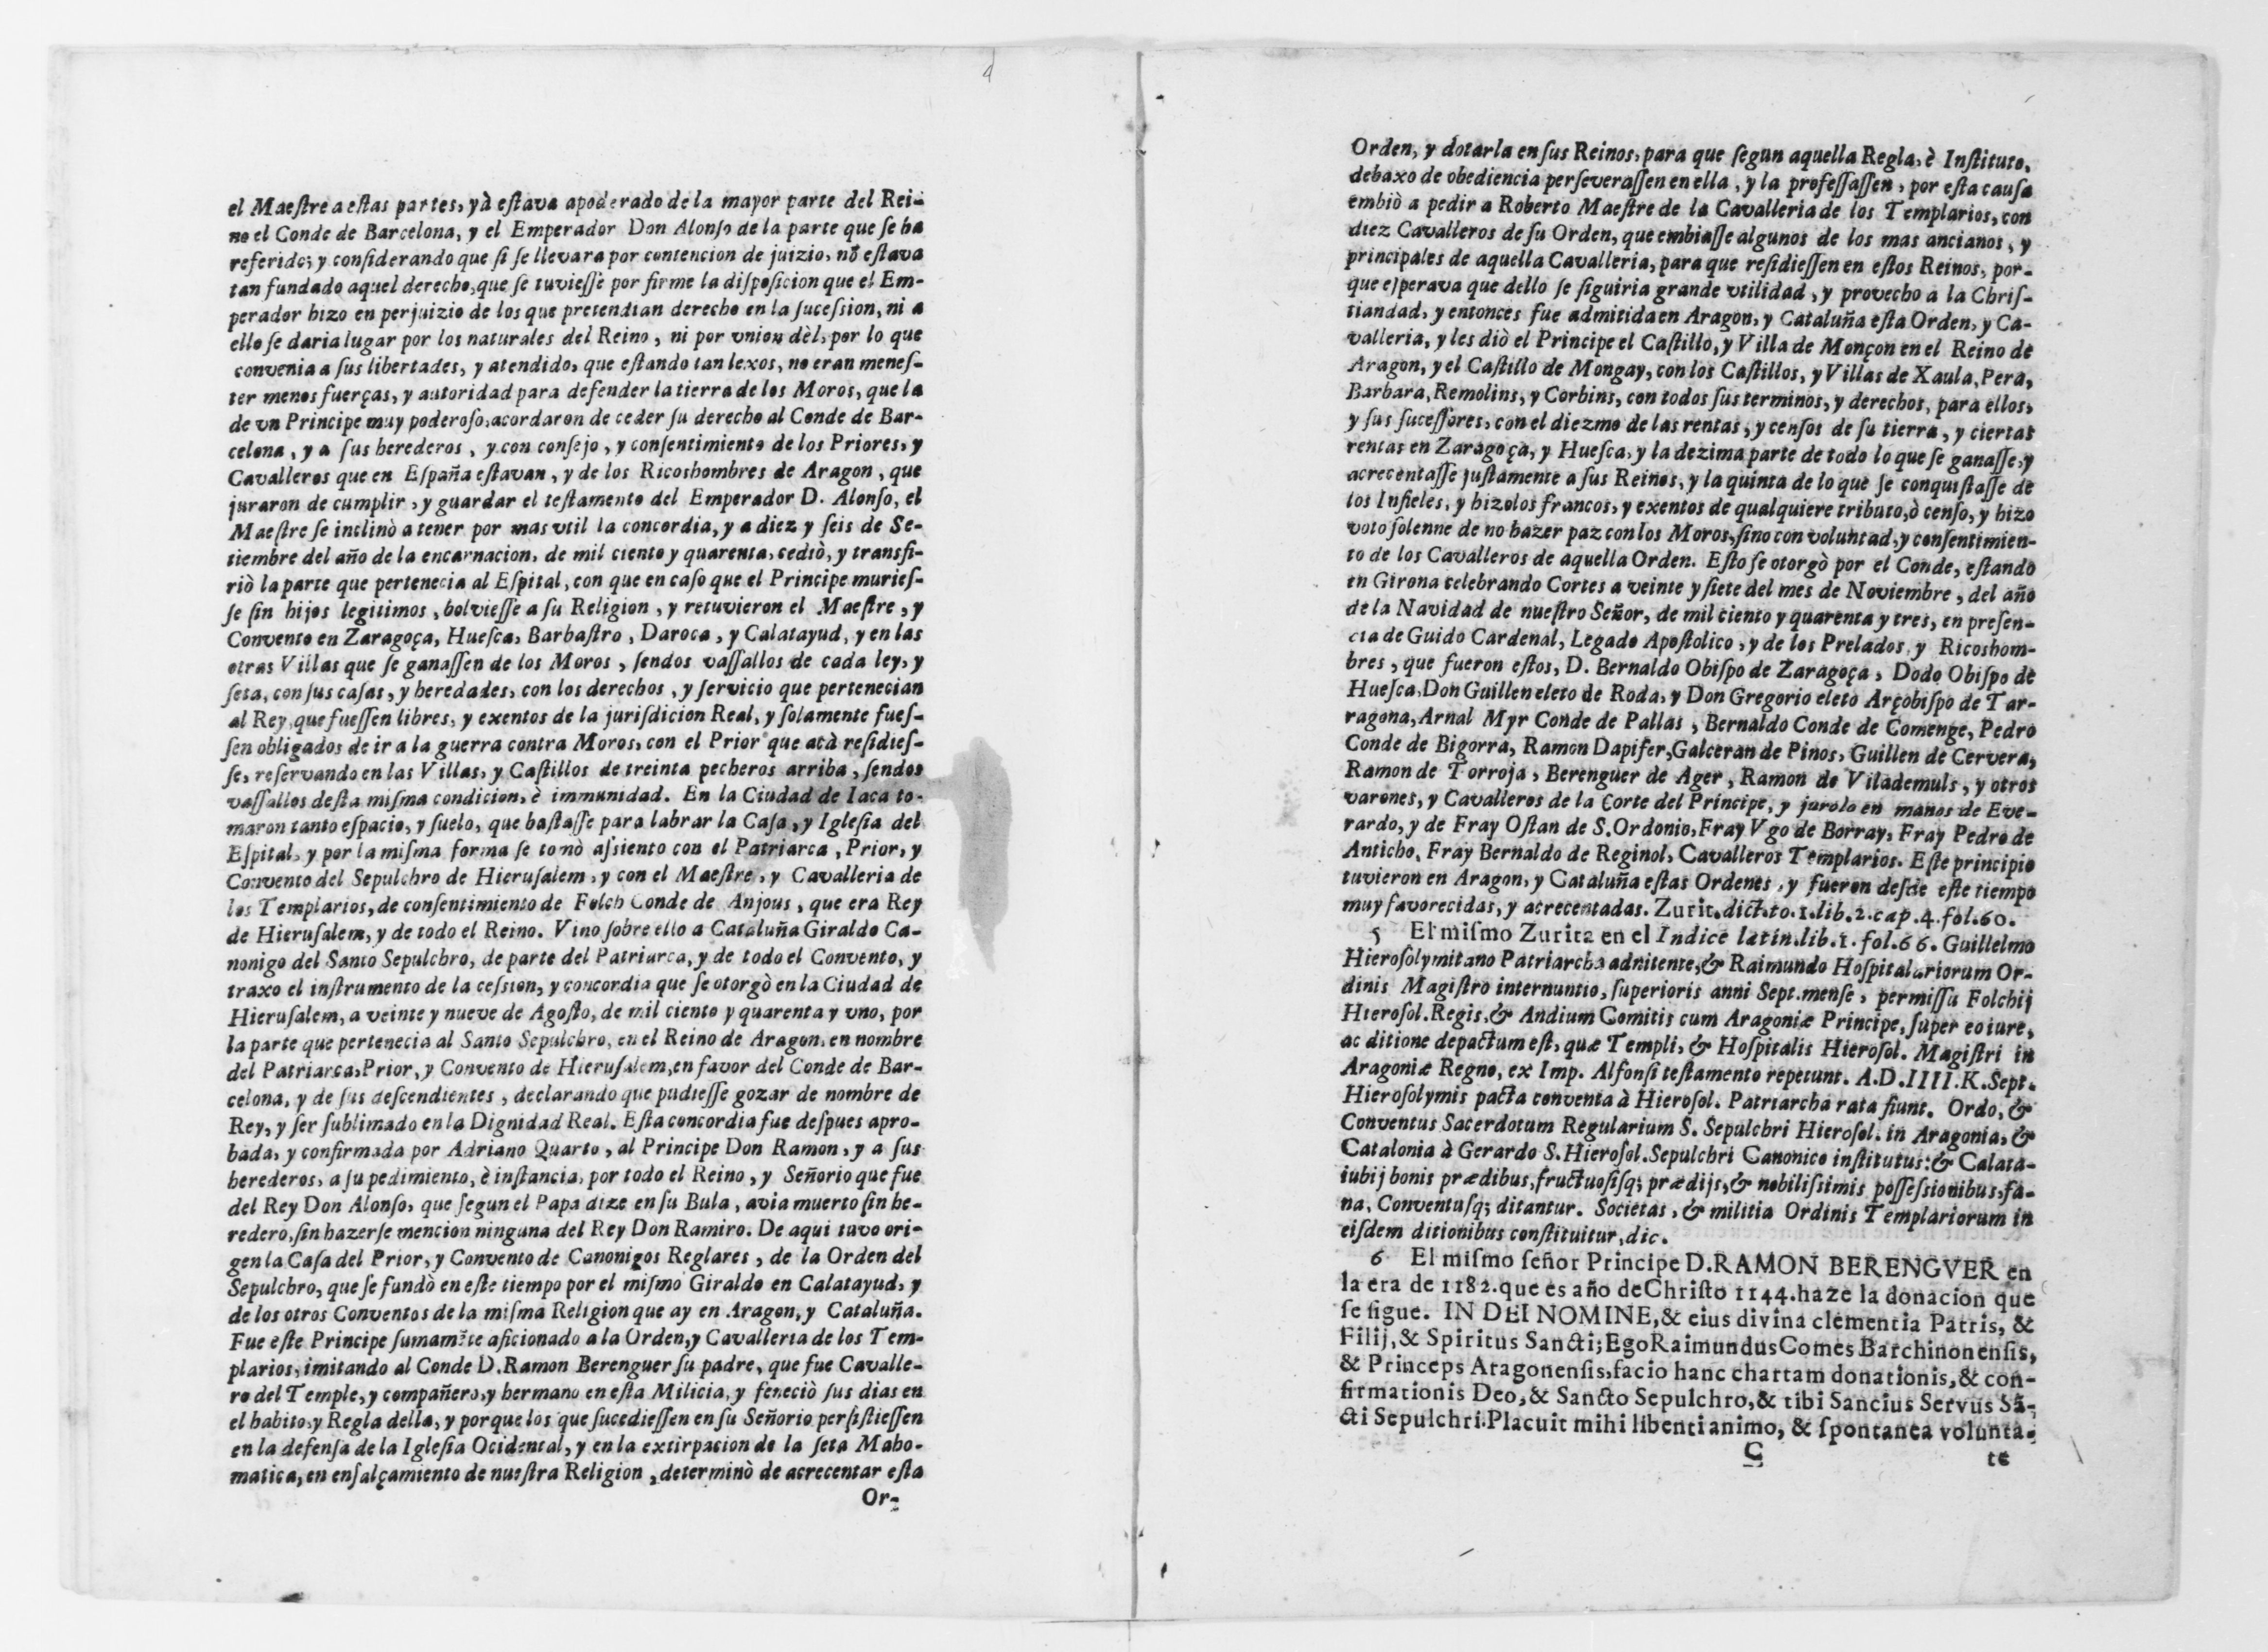 4
el Maeſtre a eſtas partes, yà eſtava apoderado de la mayor parte del Rei-
no el Conde de Barcelona, y el Emperador Don Alonſo de la parte que ſe ha
referido; y conſiderando que ſi ſe llevara por contencion de juizio, nõ eſtava
tan fundado aquel derecho, que ſe tuvieſſe por firme la diſpoſicion que el Em-
perador hizo en perjuizio de los que pretendian derecho en la ſuceſsion, ni a
ello ſe daria lugar por los naturales del Reino, ni por vnion dèl, por lo que
convenia a ſus libertades, y atendido, que eſtando tan lexos, no eran meneſ-
ter menos fuerças, y autoridad para defender la tierra de los Moros, que la
de vn Principe muy poderoſo, acordaron de ceder ſu derecho al Conde de Bar-
celona, y a ſus herederos, y con conſejo, y conſentimiento de los Priores, y
Cavalleros que en Eſpaña eſtavan, y de los Ricoshombres de Aragon, que
juraron de cumplir, y guardar el teſtamento del Emperador D. Alonſo, el
Maeſtre ſe inclinò a tener por mas vtil la concordia, y a diez y ſeis de Se-
tiembre del año de la encarnacion, de mil ciento y quarenta, cediò, y transfi-
riò la parte que pertenecia al Eſpital, con que en caſo que el Principe murieſ-
ſe ſin hijos legitimos, bolvieſſe a ſu Religion, y retuvieron el Maeſtre, y
Convento en Zaragoça, Hueſca, Barbaſtro, Daroca, y Calatayud, y en las
otras Villas que ſe ganaſſen de los Moros, ſendos vaſſallos de cada ley, y
ſeta, con ſus caſas, y heredades, con los derechos, y ſervicio que pertenecian
al Rey, que fueſſen libres, y exentos de la juriſdicion Real, y ſolamente fueſ-
ſen obligados de ir a la guerra contra Moros, con el Prior que acà reſidieſ-
ſe, reſervando en las Villas, y Caſtillos de treinta pecheros arriba, ſendos
vaſſallos deſta miſma condicion, è immunidad. En la Ciudad de Iaca to-
maron tanto eſpacio, y ſuelo, que baſtaſſe para labrar la Caſa, y Igleſia del
Eſpital, y por la miſma forma ſe tomò aſsiento con el Patriarca, Prior, y
Convento del Sepulchro de Hieruſalem, y con el Maeſtre, y Cavalleria de
los Templarios, de conſentimiento de Folch Conde de Anjous, que era Rey
de Hieruſalem, y de todo el Reino. Vino ſobre ello a Cataluña Giraldo Ca-
nonigo del Santo Sepulchro, de parte del Patriarca, y de todo el Convento, y
traxo el inſtrumento de la ceſsion, y concordia que ſe otorgò en la Ciudad de
Hieruſalem, a veinte y nueve de Agoſto, de mil ciento y quarenta y vno, por
la parte que pertenecia al Santo Sepulchro, en el Reino de Aragon, en nombre
del Patriarca, Prior, y Convento de Hieruſalem, en favor del Conde de Bar-
celona, y de ſus deſcendientes, declarando que pudieſſe gozar de nombre de
Rey, y ſer ſublimado en la Dignidad Real. Eſta concordia fue deſpues apro-
bada, y confirmada por Adriano Quarto, al Principe Don Ramon, y a ſus
herederos, a ſu pedimiento, è inſtancia, por todo el Reino, y Señorio que fue
del Rey Don Alonſo, que ſegun el Papa dize en ſu Bula, avia muerto ſin he-
redero, ſin hazerſe mencion ninguna del Rey Don Ramiro. De aqui tuvo ori-
gen la Caſa del Prior, y Convento de Canonigos Reglares, de la Orden del
Sepulchro, que ſe fundò en eſte tiempo por el miſmo Giraldo en Calatayud, y
de los otros Conventos de la miſma Religion que ay en Aragon, y Cataluña.
Fue eſte Principe ſumamẽte aficionado a la Orden, y Cavalleria de los Tem-
plarios, imitando al Conde D. Ramon Berenguer ſu padre, que fue Cavalle-
ro del Temple, y compañero, y hermano en eſta Milicia, y feneciò ſus dias en
el habito, y Regla della, y porque los que ſucedieſſen en ſu Señorio perſiſtieſſen
en la defenſa de la Igleſia Ocidental, y en la extirpacion de la ſeta Maho-
matica, en enſalçamiento de nueſtra Religion, determinò de acrecentar eſta
Or-
Orden, y dotarla en ſus Reinos, para que ſegun aquella Regla, è Inſtituto,
debaxo de obediencia perſeveraſſen en ella, y la profeſſaſſen, por eſta cauſa
embiò a pedir a Roberto Maeſtre de la Cavalleria de los Templarios, con
diez Cavalleros de ſu Orden, que embiaſſe algunos de los mas ancianos, y
principales de aquella Cavalleria, para que reſidieſſen en eſtos Reinos, por-
que eſperava que dello ſe ſiguiria grande vtilidad, y provecho a la Chriſ-
tiandad, y entonces fue admitida en Aragon, y Cataluña eſta Orden, y Ca-
valleria, y les diò el Principe el Caſtillo, y Villa de Monçon en el Reino de
Aragon, y el Caſtillo de Mongay, con los Caſtillos, y Villas de Xaula, Pera,
Barbara, Remolins, y Corbins, con todos ſus terminos, y derechos, para ellos,
y ſus ſuceſſores, con el diezmo de las rentas, y cenſos de ſu tierra, y ciertas
rentas en Zaragoça, y Hueſca, y la dezima parte de todo lo que ſe ganaſſe, y
acrecentaſſe juſtamente a ſus Reinos, y la quinta de lo que ſe conquiſtaſſe de
los Infieles, y hizolos francos, y exentos de qualquiere tributo, ò cenſo, y hizo
voto ſolenne de no hazer paz con los Moros, ſino con voluntad, y conſentimien-
to de los Cavalleros de aquella Orden. Eſto ſe otorgò por el Conde, eſtando
en Girona celebrando Cortes a veinte y ſiete del mes de Noviembre, del año
de la Navidad de nueſtro Señor, de mil ciento y quarenta y tres, en preſen-
cia de Guido Cardenal, Legado Apoſtolico, y de los Prelados, y Ricoshom-
bres, que fueron eſtos, D. Bernaldo Obiſpo de Zaragoça, Dodo Obiſpo de
Hueſca, Don Guillen eleto de Roda, y Don Gregorio eleto Arçobiſpo de Tar-
ragona, Arnal Myr Conde de Pallas, Bernaldo Conde de Comenge, Pedro
Conde de Bigorra, Ramon Dapifer, Galceran de Pinos, Guillen de Cervera,
Ramon de Torroja, Berenguer de Ager, Ramon de Vilademuls, y otros
varones, y Cavalleros de la Corte del Principe, y jurolo en manos de Eve-
rardo, y de Fray Oſtan de S. Ordonio, Fray Vgo de Borray, Fray Pedro de
Anticho, Fray Bernaldo de Reginol, Cavalleros Templarios. Eſte principio
tuvieron en Aragon, y Cataluña eſtas Ordenes, y fueron deſde eſte tiempo
muy favorecidas, y acrecentadas. Zurit. dict. to. 1. lib. 2. cap. 4. fol. 60.
5 El miſmo Zurita en el Indice latin. lib. 1. fol. 66. Guillelmo
Hieroſolymitano Patriarcha adnitente, & Raimundo Hoſpitalariorum Or-
dinis Magiſtro internuntio, ſuperioris anni Sept. menſe, permiſſu Folchij
Hieroſol. Regis, & Andium Comitis cum Aragoniæ Principe, ſuper eo iure,
ac ditione depactum eſt, quæ Templi, & Hoſpitalis Hieroſol. Magiſtri in
Aragoniæ Regno, ex Imp. Alfonſi teſtamento repetunt. A.D.IIII.K.Sept.
Hieroſolymis pacta conventa à Hieroſol. Patriarcha rata fiunt. Ordo, &
Conventus Sacerdotum Regularium S. Sepulchri Hieroſol. in Aragonia, &
Catalonia à Gerardo S. Hieroſol. Sepulchri Canonico inſtitutus: & Calata-
iubij bonis prædibus, fructuoſiſq; prædijs, & nobiliſsimis poſſeſsionibus, fa-
na, Conventuſq; ditantur. Societas, & militia Ordinis Templariorum in
eiſdem ditionibus conſtituitur, dic.
6 El miſmo ſeñor Principe D. RAMON BERENGVER en
la era de 1182. que es año de Chriſto 1144. haze la donacion que
ſe ſigue. IN DEI NOMINE, & eius divina clementia Patris, &
Filij, & Spiritus Sancti; Ego Raimundus Comes Barchinonenſis,
& Princeps Aragonenſis, facio hanc chartam donationis, & con-
firmationis Deo, & Sancto Sepulchro, & tibi Sancius Servus Sã-
cti Sepulchri. Placuit mihi libenti animo, & ſpontanea volunta-
C
te